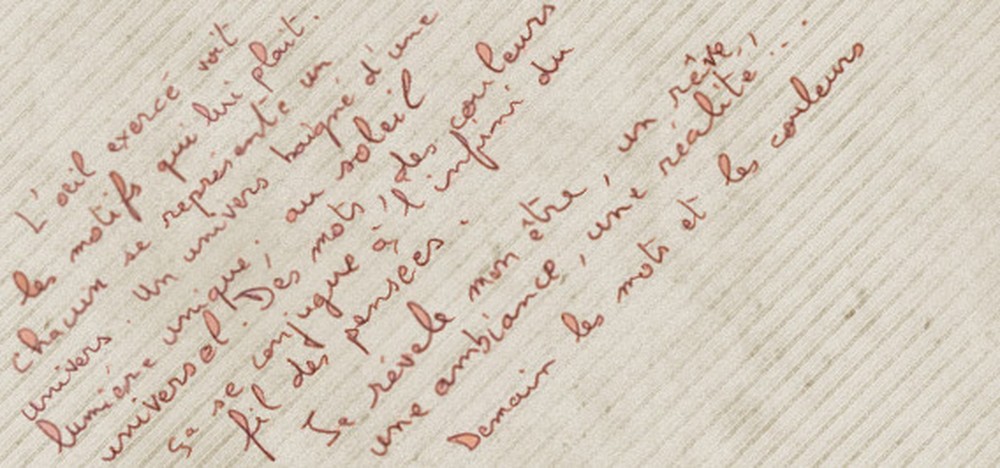 L'œil exercé voit
les motifs qui lui plait.
Chacun se représente un
univers. Un univers baigné d'une
lumière unique, au soleil
universel. Des mots, des couleurs
ça se conjugue à l'infini du
fil des pensées.
Je révèle mon être, un rêve,
une ambiance, une réalité...
Demain les mots et les couleurs